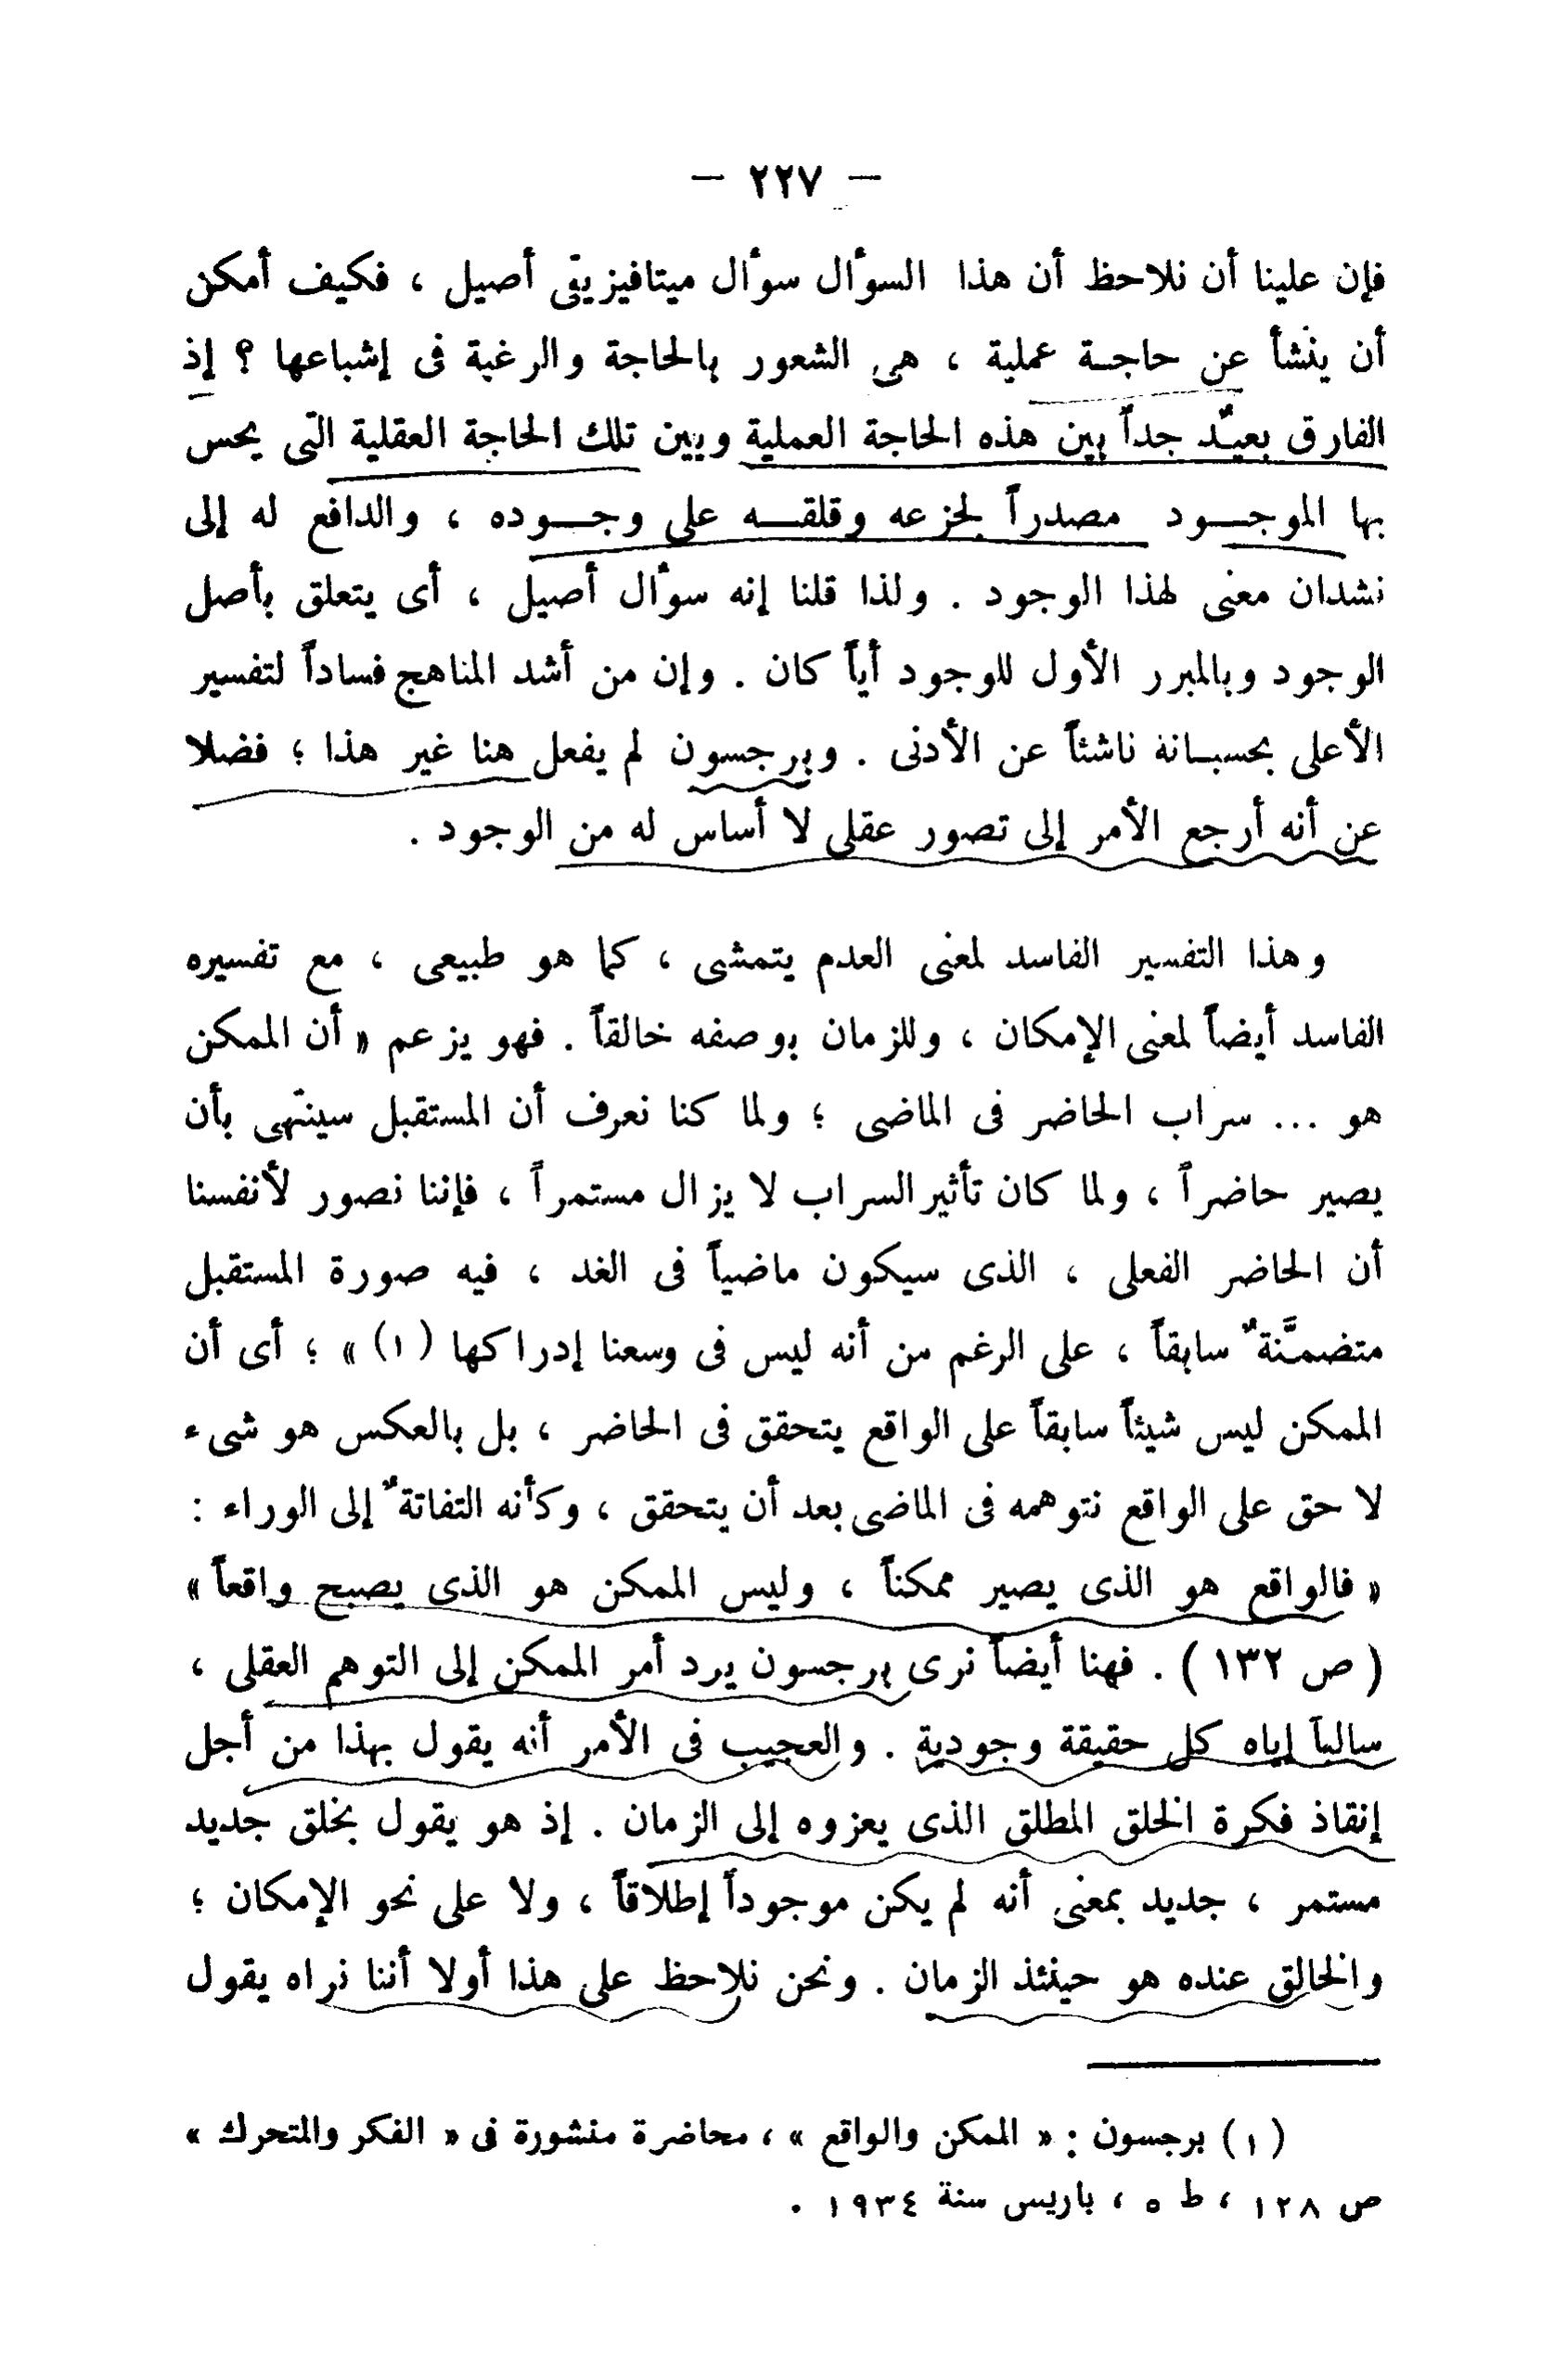 — ٢٢٧ —
فإن علينا أن نلاحظ أن هذا السؤال سؤال ميتافيزيقى أصيل ، فكيف أمكن
أن ينشأ عن حاجة عملية ، هى الشعور بالحاجة والرغبة فى إشباعها ؟ إذ
الفارق بعيدٌ جداً بين هذه الحاجة العملية وبين تلك الحاجة العقلية التى يحس
بها الموجود مصدراً لجزعه وقلقه على وجوده ، والدافع له إلى
نشدان معنى لهذا الوجود . ولذا قلنا إنه سؤال أصيل ، أى يتعلق بأصل
الوجود وبالمبرر الأول للوجود أياً كان . وإن من أشد المناهج فساداً لتفسير
الأعلى بحسبانه ناشئاً عن الأدنى . وبرجسون لم يفعل هنا غير هذا ؛ فضلا
عن أنه أرجع الأمر إلى تصور عقلى لا أساس له من الوجود .
وهذا التفسير الفاسد لمعنى العدم يتمشى ، كما هو طبيعى ، مع تفسيره
الفاسد أيضاً لمعنى الإمكان ، وللزمان بوصفه خالقاً . فهو يزعم « أن الممكن
هو ... سراب الحاضر فى الماضى ؛ ولما كنا نعرف أن المستقبل سينتهى بأن
يصير حاضراً ، ولما كان تأثير السراب لا يزال مستمراً ، فإننا نصور لأنفسنا
أن الحاضر الفعلى ، الذى سيكون ماضياً فى الغد ، فيه صورة المستقبل
متضمَّنةٌ سابقاً ، على الرغم من أنه ليس فى وسعنا إدراكها (١) » ؛ أى أن
الممكن ليس شيئاً سابقاً على الواقع يتحقق فى الحاضر ، بل بالعكس هو شىء
لا حق على الواقع نتوهمه فى الماضى بعد أن يتحقق ، وكأنه التفاتةٌ إلى الوراء :
« فالواقع هو الذى يصير ممكناً ، وليس الممكن هو الذى يصبح واقعاً »
( ص ١٣٢ ) . فهنا أيضاً نرى برجسون يرد أمر الممكن إلى التوهم العقلى ،
سالباً إياه كل حقيقة وجودية . والعجيب فى الأمر أنه يقول بهذا من أجل
إنقاذ فكرة الخلق المطلق الذى يعزوه إلى الزمان . إذ هو يقول بخلق جديد
مستمر ، جديد بمعنى أنه لم يكن موجوداً إطلاقاً ، ولا على نحو الإمكان ؛
والخالق عنده هو حينئذ الزمان . ونحن نلاحظ على هذا أولا أننا نراه يقول
(١) برجسون : « الممكن والواقع » ، محاضرة منشورة فى « الفكر والمتحرك »
ص ١٢٨ ، ط ٥ ، باريس سنة ١٩٣٤ .